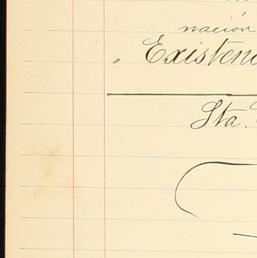 nación
" Existen
Sta.